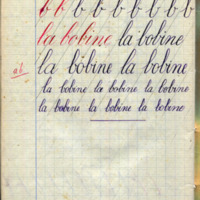 b b b b b b b b b
la bobine la bobine
ab la bobine la bobine
la bobine la bobine la bobine
la bobine la bobine la bobine